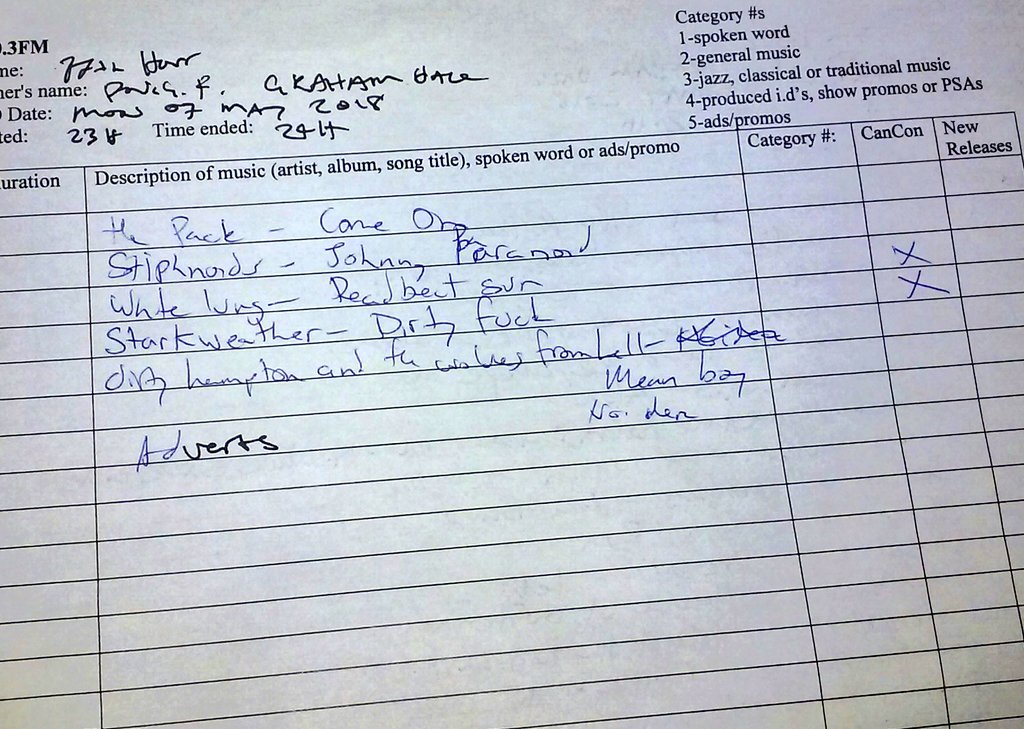 .3FM
Category #s
1-spoken word
2-general music
3-jazz, classical or traditional music
4-produced i.d's, show promos or PSAs
5-ads/promos
me:
ner's name: F. GRAHAM
Date: MON 07 MAY 2018
ted: 23H Time ended: 24H
uration Description of music (artist, album, song title), spoken word or ads/promo Category #: CanCon New Releases
the Pack - Come On
Stiphnoids - Johnny Paranoid
X
White lung - sun
X
Starkweather - Dirty Fuck
dirty hampton and the wolves from hell -
Mean boy
Adverts